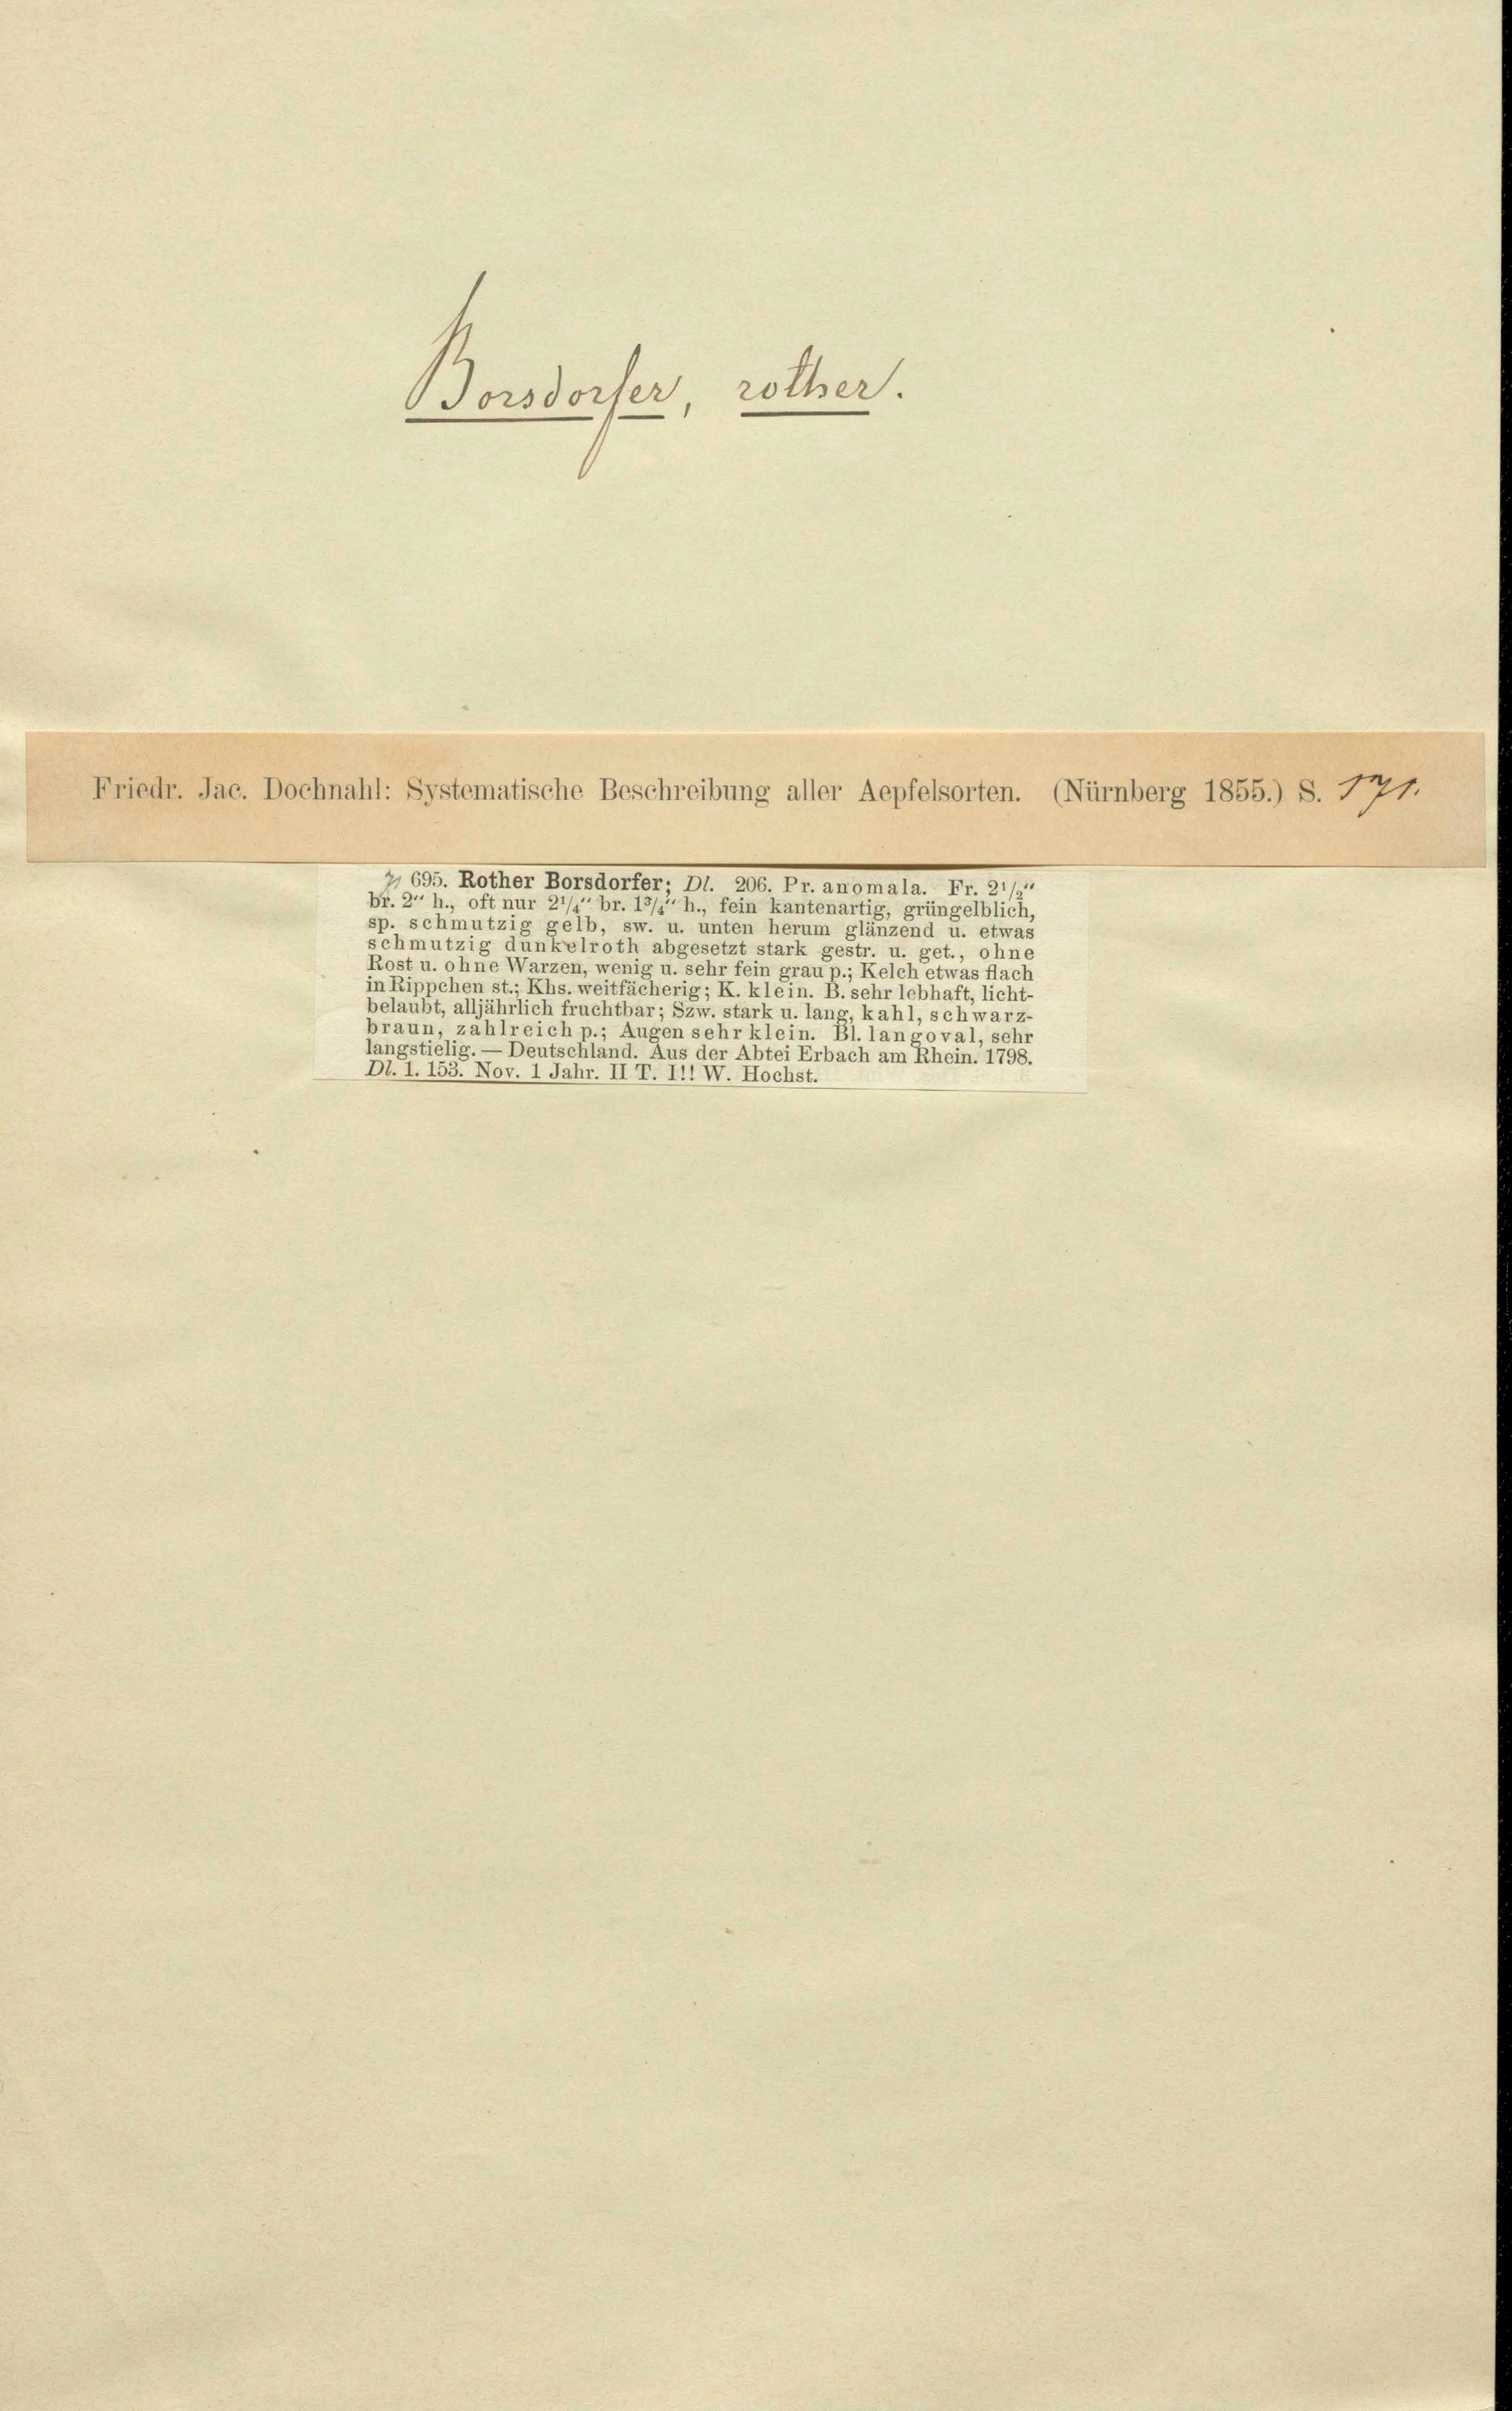 Borsdorfer, rother.
Friedr. Jac. Dochnahl: Systematische Beschreibung aller Aepfelsorten. (Nürnberg 1855.) S. 171.
695. Rother Borsdorfer; Dl. 206. Pr. anomala. Fr. 2¹/₂“
br. 2“ h., oft nur 2¹/₄“ br. 1³/₄“ h., fein kantenartig, grüngelblich,
sp. schmutzig gelb, sw. u. unten herum glänzend u. etwas
schmutzig dunkelroth abgesetzt stark gestr. u. get., ohne
Rost u. ohne Warzen, wenig u. sehr fein grau p.; Kelch etwas flach
in Rippchen st.; Khs. weitfächerig; K. klein. B. sehr lebhaft, licht-
belaubt, alljährlich fruchtbar; Szw. stark u. lang, kahl, schwarz-
braun, zahlreich p.; Augen sehr klein. Bl. langoval, sehr
langstielig. — Deutschland. Aus der Abtei Erbach am Rhein. 1798.
Dl. 1. 153. Nov. 1 Jahr. II T. I!! W. Hochst.